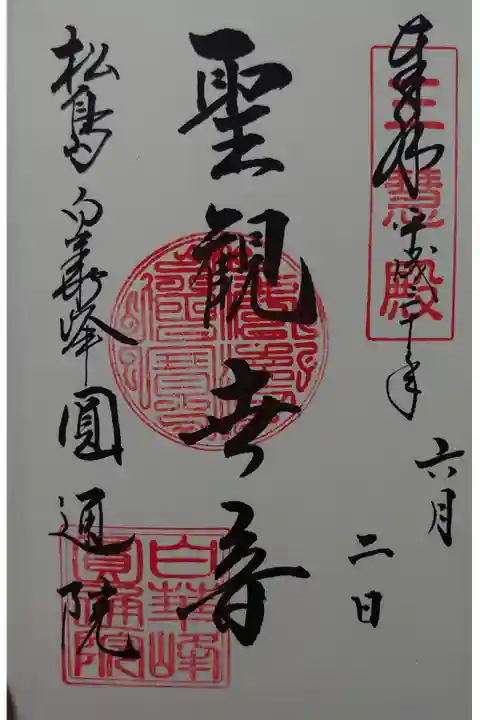 奉拝 平成三十年
六月
二日
三慧殿
聖觀世音
松島 白華峰 圓通院
白華峰
圓通院